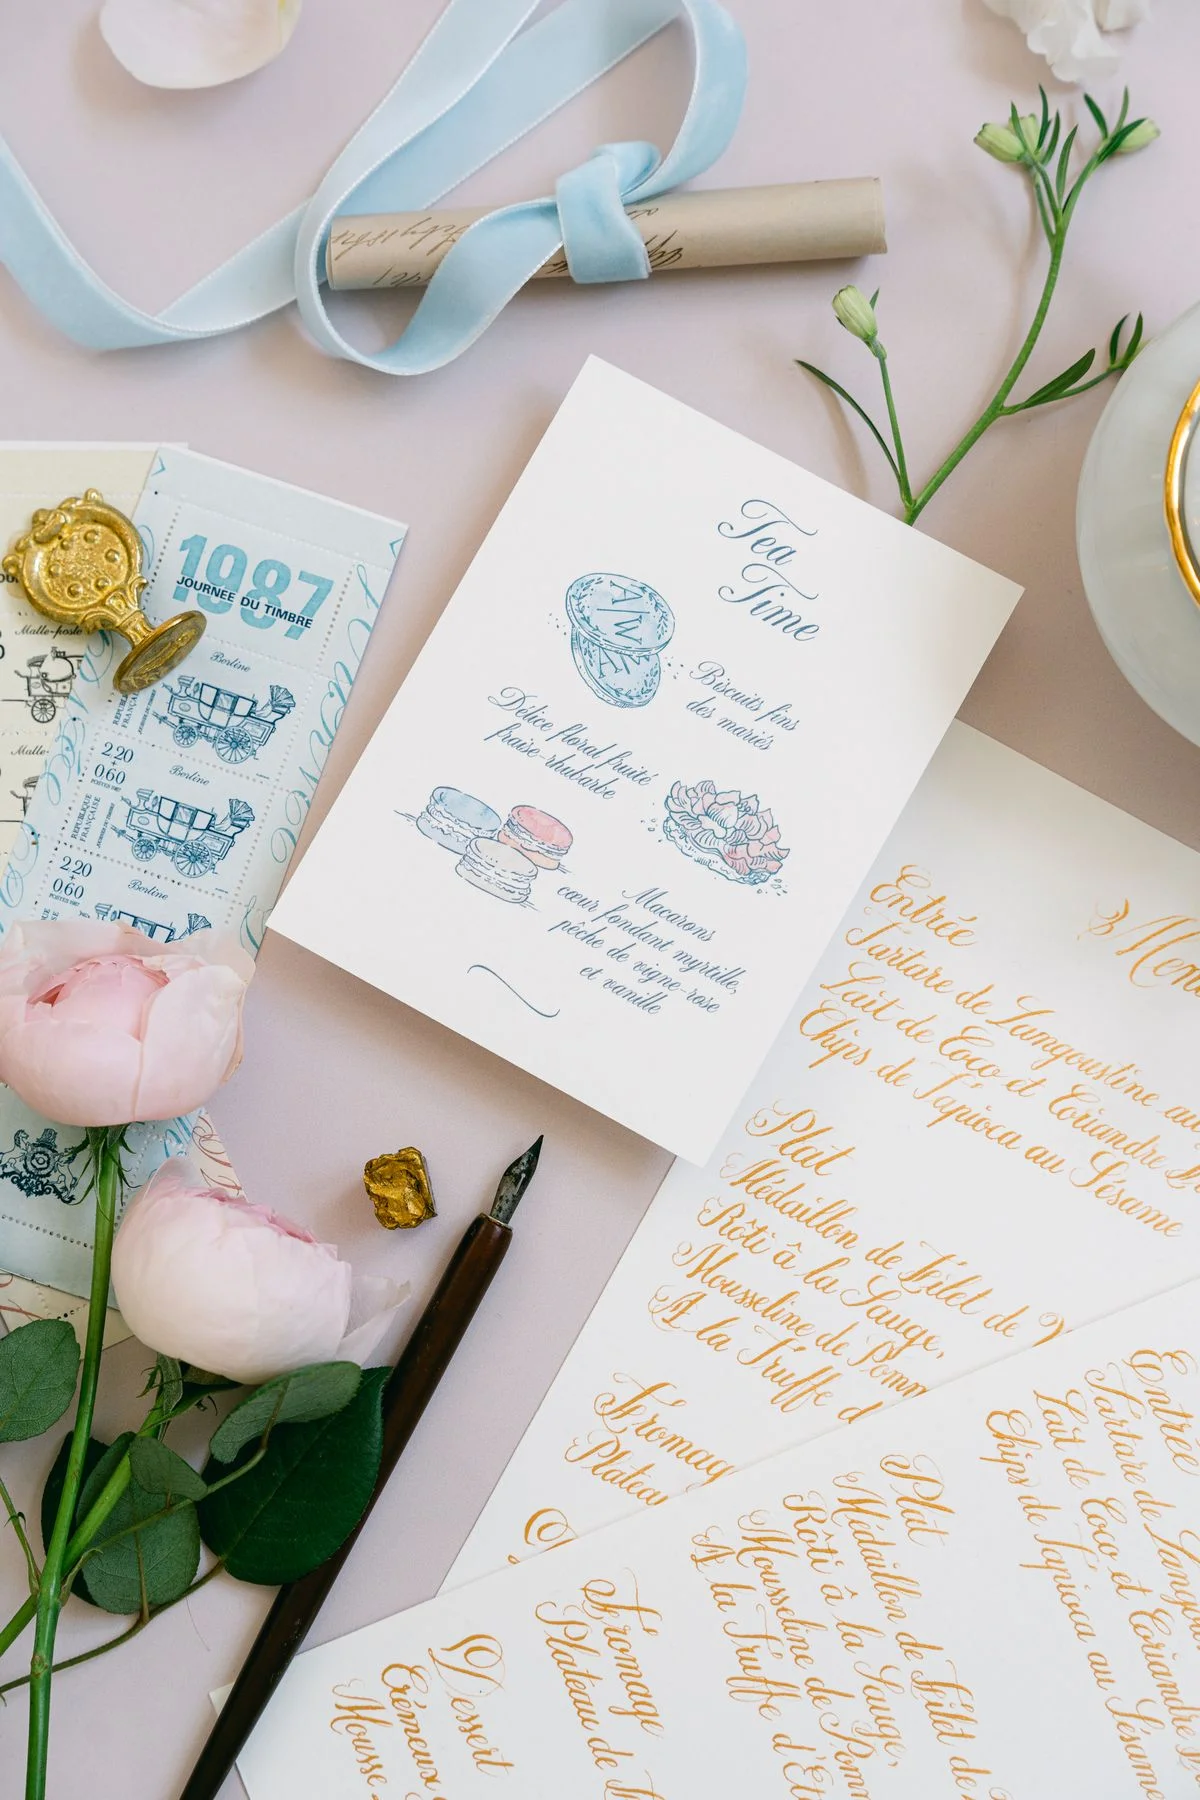 1987
JOURNÉE DU TIMBRE
Malle-poste
Berline
RÉPUBLIQUE
FRANÇAISE
2,20
+
0,60
POSTES 1987
Berline
RÉPUBLIQUE
FRANÇAISE
2,20
+
0,60
Berline
Malle-
Tea
Time
A W
Biscuits fins
des mariés
Délice floral fruité
fraise-rhubarbe
Macarons
cœur fondant myrtille,
pêche de vigne-rose
et vanille
Menu
Entrée
Tartare de Langoustine au
Lait de Coco et Coriandre
Chips de Tapioca au Sésame
Plat
Médaillon de Filet de
Rôti à la Sauge,
Mousseline de Pomm
A la Truffe d
Fromag
Platea
Entrée
Tartare de Langou
Lait de Coco et Coriandre
Chips de Tapioca au Sésame
Plat
Médaillon de Filet de
Rôti à la Sauge,
Mousseline de Pomm
A la Truffe d'Ét
Fromage
Plateau de F
Dessert
Crémeux
Mousse